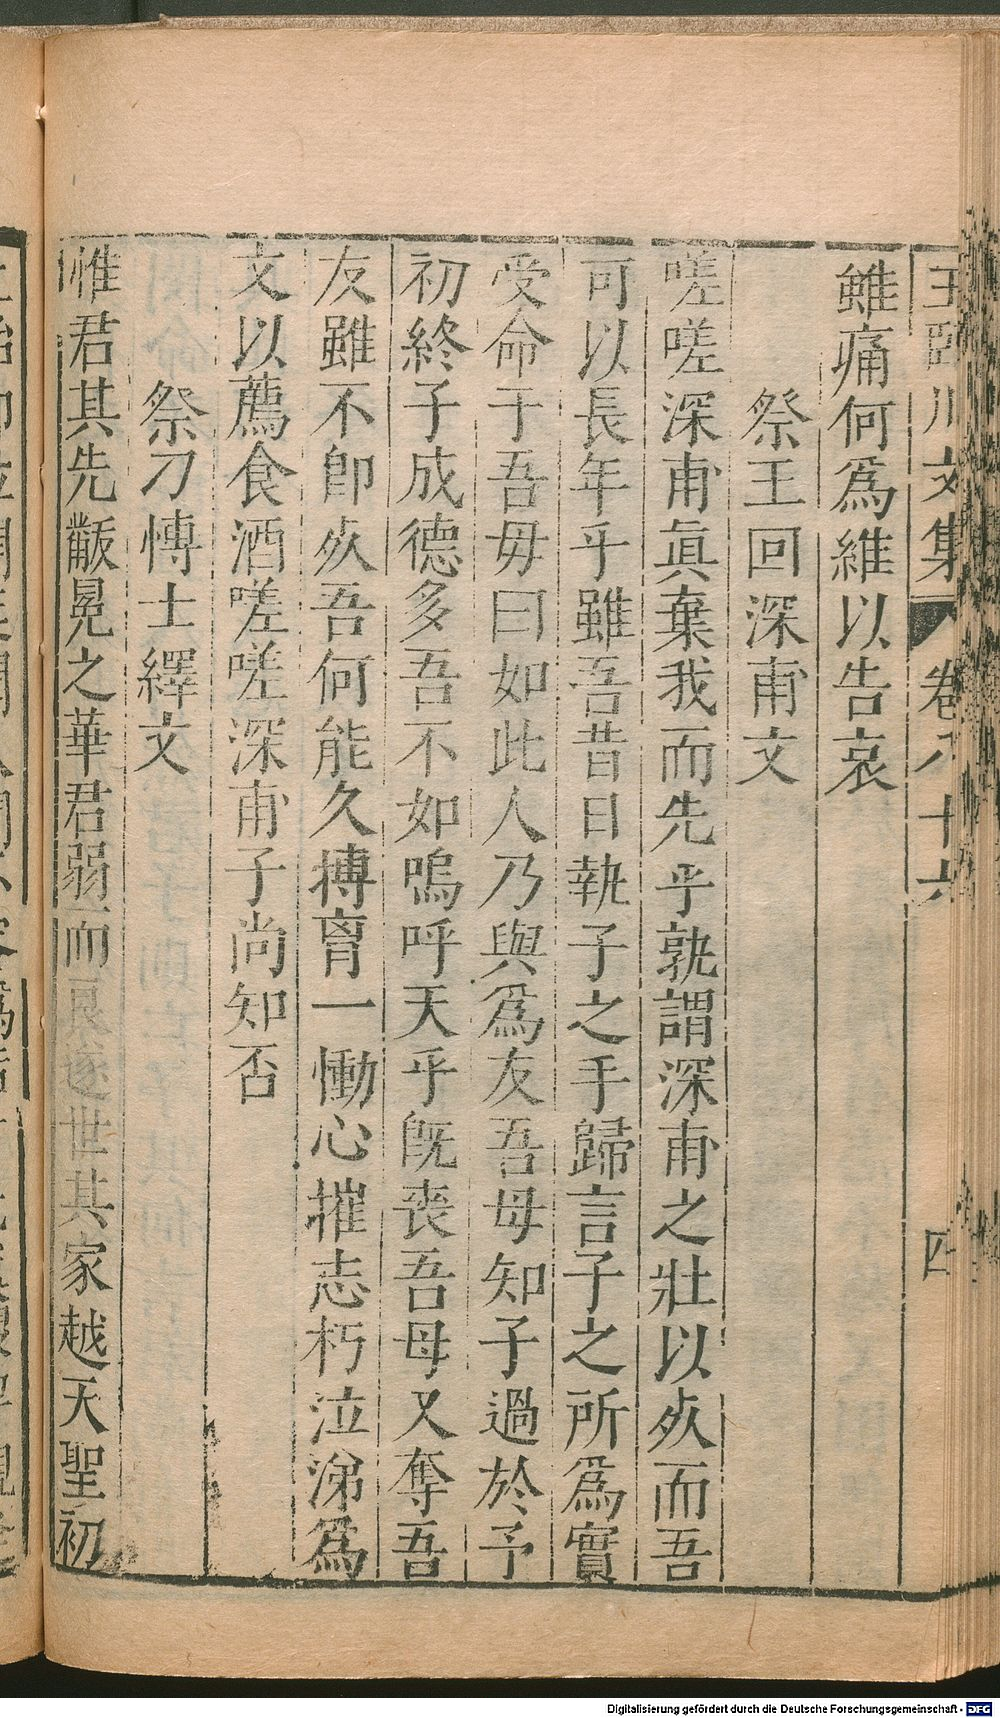 王臨川文集 卷八十六 四
雖痛何爲維以告哀
祭王回深甫文
嗟嗟深甫眞棄我而先乎孰謂深甫之壯以死而吾
可以長年乎雖吾昔日執子之手歸言子之所爲實
受命于吾母曰如此人乃與爲友吾母知子過於予
初終子成德多吾不如嗚呼天乎旣喪吾母又奪吾
友雖不卽死吾何能久搏胷一慟心摧志朽泣涕爲
文以薦食酒嗟嗟深甫子尚知否
祭刁愽士繹文
惟君其先黻冕之華君弱而艮遂世其家越天聖初
Digitalisierung gefördert durch die Deutsche Forschungsgemeinschaft - DFG